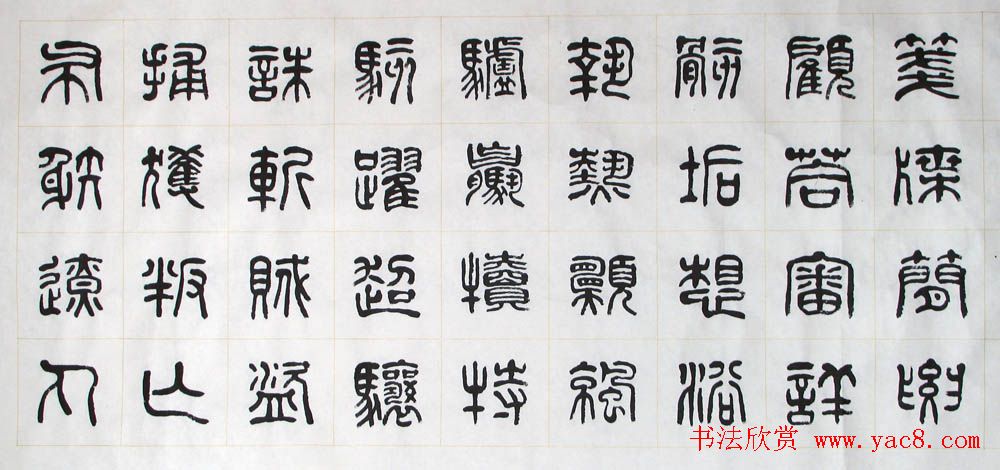 箋牒簡要
顧荅審詳
骸垢想浴
執熱願涼
驢驘犢特
駭躍超驤
誅斬賊盜
捕獲叛亡
布射遼丸
书法欣赏 www.yac8.com